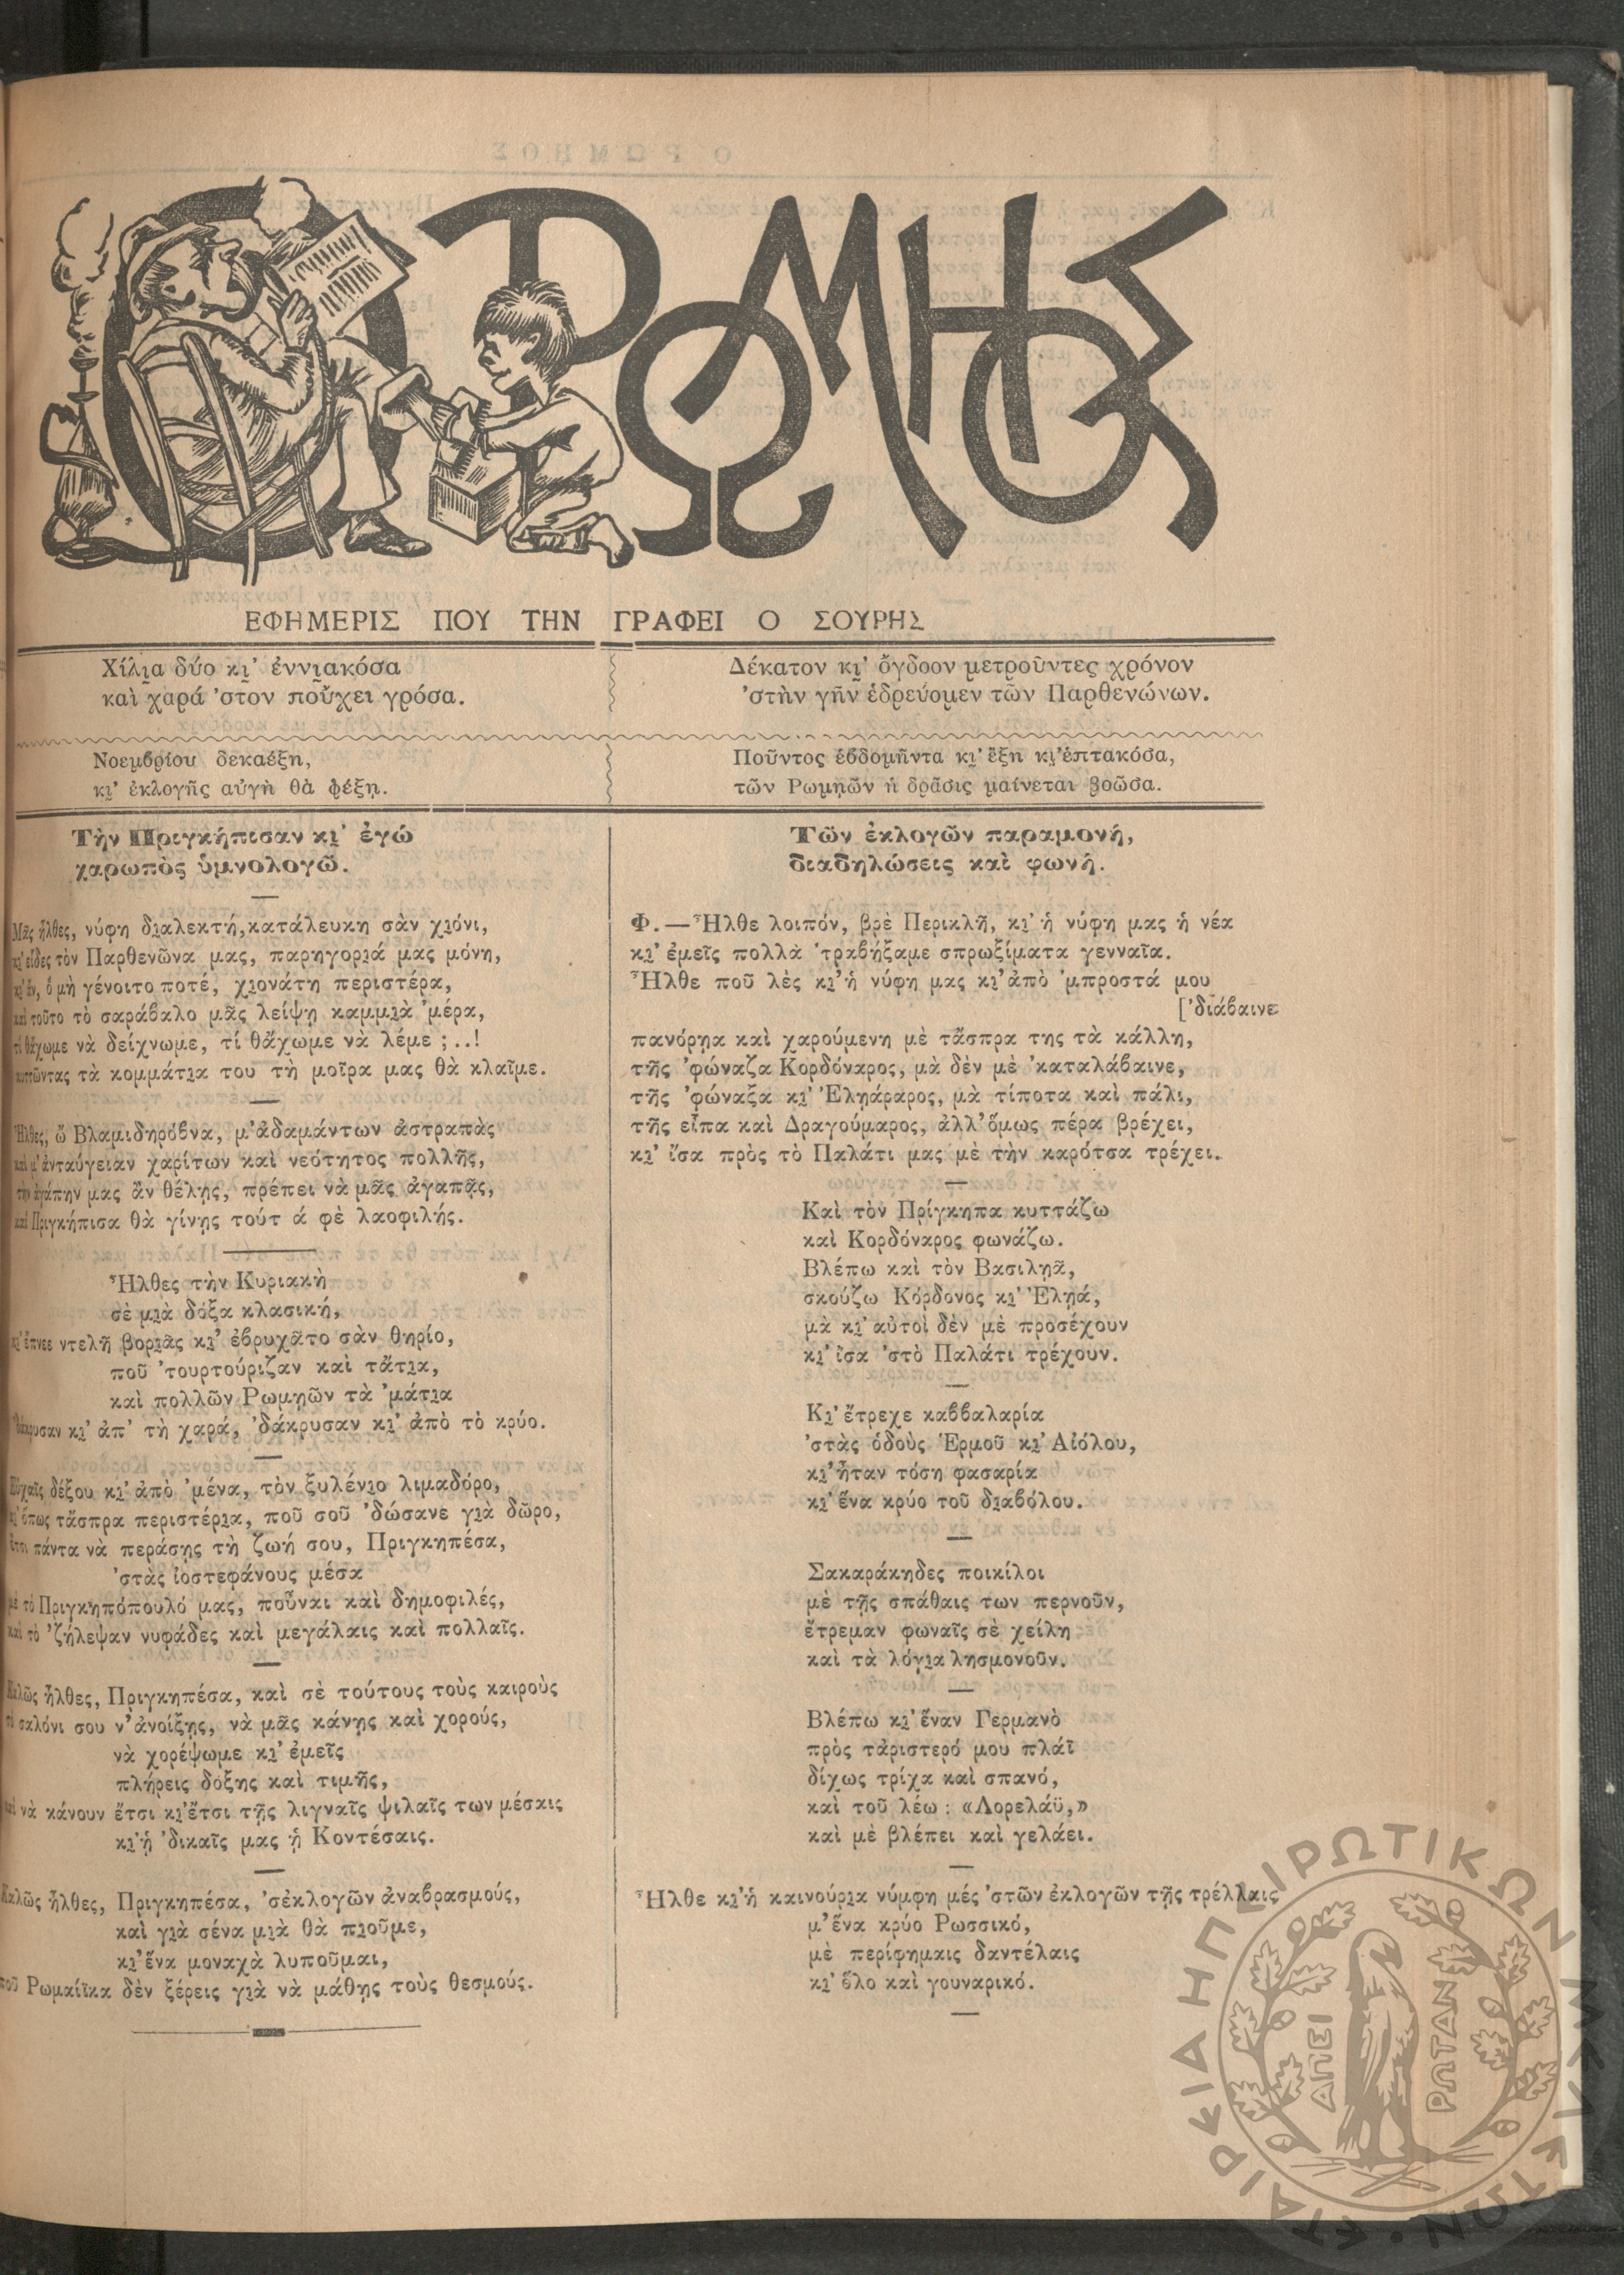 Ο ΡΩΜΗΟΣ
ΕΦΗΜΕΡΙΣ ΠΟΥ ΤΗΝ ΓΡΑΦΕΙ Ο ΣΟΥΡΗΣ
Χίλι̯α δύο κι̯’ ἐννι̯ακόσα
καὶ χαρά ’στον ποὔχει γρόσα.
Δέκατον κι̯’ ὄγδοον μετροῦντες χρόνον
’στὴν γῆν ἑδρεύομεν τῶν Παρθενώνων.
Νοεμβρίου δεκαέξη,
κι̯’ ἐκλογῆς αὐγὴ θὰ φέξῃ.
Ποῦντος ἑβδομῆντα κι̯’ ἕξη κι̯’ ἑπτακόσα,
τῶν Ρωμῃῶν ἡ δρᾶσις μαίνεται βοῶσα.
Τὴν Πριγκήπισαν κι̯’ ἐγώ
χαρωπὸς ὑμνολογῶ.
Μᾶς ἦλθες, νύφη δι̯αλεκτή, κατάλευκη σὰν χι̯όνι,
κι̯’ εἶδες τὸν Παρθενῶνα μας, παρηγορι̯ά μας μόνη,
κι̯’ ἄν, ὃ μὴ γένοιτο ποτέ, χι̯ονάτη περιστέρα,
καὶ τοῦτο τὸ σαράβαλο μᾶς λείψῃ καμμι̯ὰ ’μέρα,
τί θἄχωμε νὰ δείχνωμε, τί θἄχωμε νὰ λέμε ;..!
κυττῶντας τὰ κομμάτι̯α του τὴ μοῖρα μας θὰ κλαῖμε.
Ἦλθες, ὦ Βλαμιδηρόβνα, μ’ ἀδαμάντων ἀστραπὰς
καὶ μ’ ἀνταύγειαν χαρίτων καὶ νεότητος πολλῆς,
τὴν ἀγάπην μας ἂν θέλῃς, πρέπει νὰ μᾶς ἀγαπᾷς,
καὶ Πριγκήπισα θὰ γίνῃς τούτ ἁ φὲ λαοφιλής.
Ἦλθες τὴν Κυριακὴ
σὲ μι̯ὰ δόξα κλασική,
κι̯’ ἔπνεε ντελῆ βορι̯ᾶς κι̯’ ἐβρυχᾶτο σὰν θηρίο,
ποῦ ’τουρτούριζαν καὶ τἄτι̯α,
καὶ πολλῶν Ρωμῃῶν τὰ ’μάτι̯α
’δάκρυσαν κι̯’ ἀπ’ τὴ χαρά, ’δάκρυσαν κι̯’ ἀπὸ τὸ κρύο.
Εὐχαῖς δέξου κι̯’ ἀπὸ ’μένα, τὸν ξυλένι̯ο λιμαδόρο,
κι̯’ ὅπως τἄσπρα περιστέρι̯α, ποῦ σοῦ ’δώσανε γι̯ὰ δῶρο,
ἔτσι πάντα νὰ περάσῃς τὴ ζωή σου, Πριγκηπέσα,
’στὰς ἰοστεφάνους μέσα
μὲ τὸ Πριγκηπόπουλό μας, ποὖναι καὶ δημοφιλές,
καὶ τὸ ’ζήλεψαν νυφάδες καὶ μεγάλαις καὶ πολλαῖς.
Καλῶς ἦλθες, Πριγκηπέσα, καὶ σὲ τούτους τοὺς καιροὺς
τὸ σαλόνι σου ν’ ἀνοίξῃς, νὰ μᾶς κάνῃς καὶ χορούς,
νὰ χορέψωμε κι̯’ ἐμεῖς
πλήρεις δόξης καὶ τιμῆς,
καὶ νὰ κάνουν ἔτσι κι̯’ ἔτσι τῇς λιγναῖς ψιλαῖς των μέσαις
κι̯’ ᾑ ’δικαῖς μας ᾑ Κοντέσαις.
Καλῶς ἦλθες, Πριγκηπέσα, ’σἐκλογῶν ἀναβρασμούς,
καὶ γι̯ὰ σένα μι̯ὰ θὰ πι̯οῦμε,
κι̯’ ἕνα μοναχὰ λυποῦμαι,
ποῦ Ρωμαίϊκα δὲν ξέρεις γι̯ὰ νὰ μάθῃς τοὺς θεσμούς.
Τῶν ἐκλογῶν παραμονή,
διαδηλώσεις καὶ φωνή.
Φ. — Ἦλθε λοιπόν, βρὲ Περικλῆ, κι̯’ ἡ νύφη μας ἡ νέα
κι̯’ ἐμεῖς πολλὰ ’τραβήξαμε σπρωξίματα γενναῖα.
Ἦλθε ποῦ λὲς κι̯’ ἡ νύφη μας κι̯’ ἀπὸ ’μπροστά μου
[’διάβαινε
πανόρῃα καὶ χαρούμενη μὲ τἄσπρα της τὰ κάλλη,
τῆς ’φώναζα Κορδόναρος, μὰ δὲν μὲ ’καταλάβαινε,
τῆς ’φώναξα κι̯’ Ἐλῃάραρος, μὰ τίποτα καὶ πάλι,
τῆς εἶπα καὶ Δραγούμαρος, ἀλλ’ ὅμως πέρα βρέχει,
κι̯’ ἴσα πρὸς τὸ Παλάτι μας μὲ τὴν καρότσα τρέχει.
Καὶ τὸν Πρίγκηπα κυττάζω
καὶ Κορδόναρος φωνάζω.
Βλέπω καὶ τὸν Βασιλῃᾶ,
σκούζω Κόρδονος κι̯’ Ἐλῃά,
μὰ κι̯’ αὐτοὶ δὲν μὲ προσέχουν
κι̯’ ἴσα ’στὸ Παλάτι τρέχουν.
Κι̯’ ἔτρεχε καββαλαρία
’στὰς ὁδοὺς Ἑρμοῦ κι̯’ Αἰόλου,
κι̯’ ἦταν τόση φασαρία
κι̯’ ἕνα κρύο τοῦ δι̯αβόλου.
Σακαράκηδες ποικίλοι
μὲ τῇς σπάθαις των περνοῦν,
ἔτρεμαν φωναῖς σὲ χείλη
καὶ τὰ λόγι̯α λησμονοῦν.
Βλέπω κι̯’ ἕναν Γερμανὸ
πρὸς τἀριστερό μου πλάϊ
δίχως τρίχα καὶ σπανό,
καὶ τοῦ λέω : «Λορελάϋ,»
καὶ μὲ βλέπει καὶ γελάει.
Ἦλθε κι̯’ ἡ καινούρι̯α νύμφη μές ’στῶν ἐκλογῶν τῇς τρέλλαις
μ’ ἕνα κρύο Ρωσσικό,
μὲ περίφημαις δαντέλαις
κι̯’ ὅλο καὶ γουναρικό.
ΕΤΑΙΡΕΙΑ ΗΠΕΙΡΩΤΙΚΩΝ ΜΕΛΕΤΩΝ
ΑΠΕΙ
ΡΩΤΑΝ